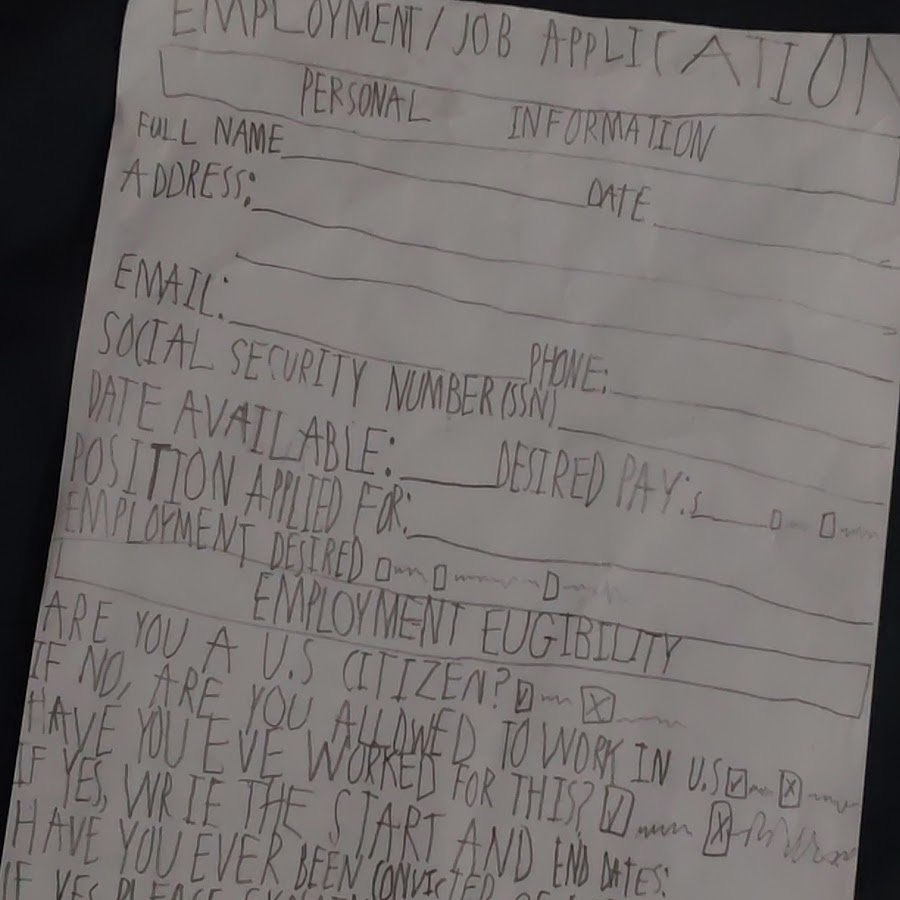 EMPLOYMENT/JOB APPLICATION
PERSONAL INFORMATION
FULL NAME DATE
ADDRESS:
EMAIL: PHONE:
SOCIAL SECURITY NUMBER (SSN)
DATE AVAILABLE: DESIRED PAY:
POSITION APPLIED FOR:
EMPLOYMENT DESIRED
EMPLOYMENT EUGIBILITY
ARE YOU A U.S CITIZEN?
IF NO, ARE YOU ALLOWED TO WORK IN U.S
HAVE YOU EVE WORKED FOR THIS?
IF YES, WRIE THE START AND END DATES:
HAVE YOU EVER BEEN CONVICTED OF
IF YES PLEASE